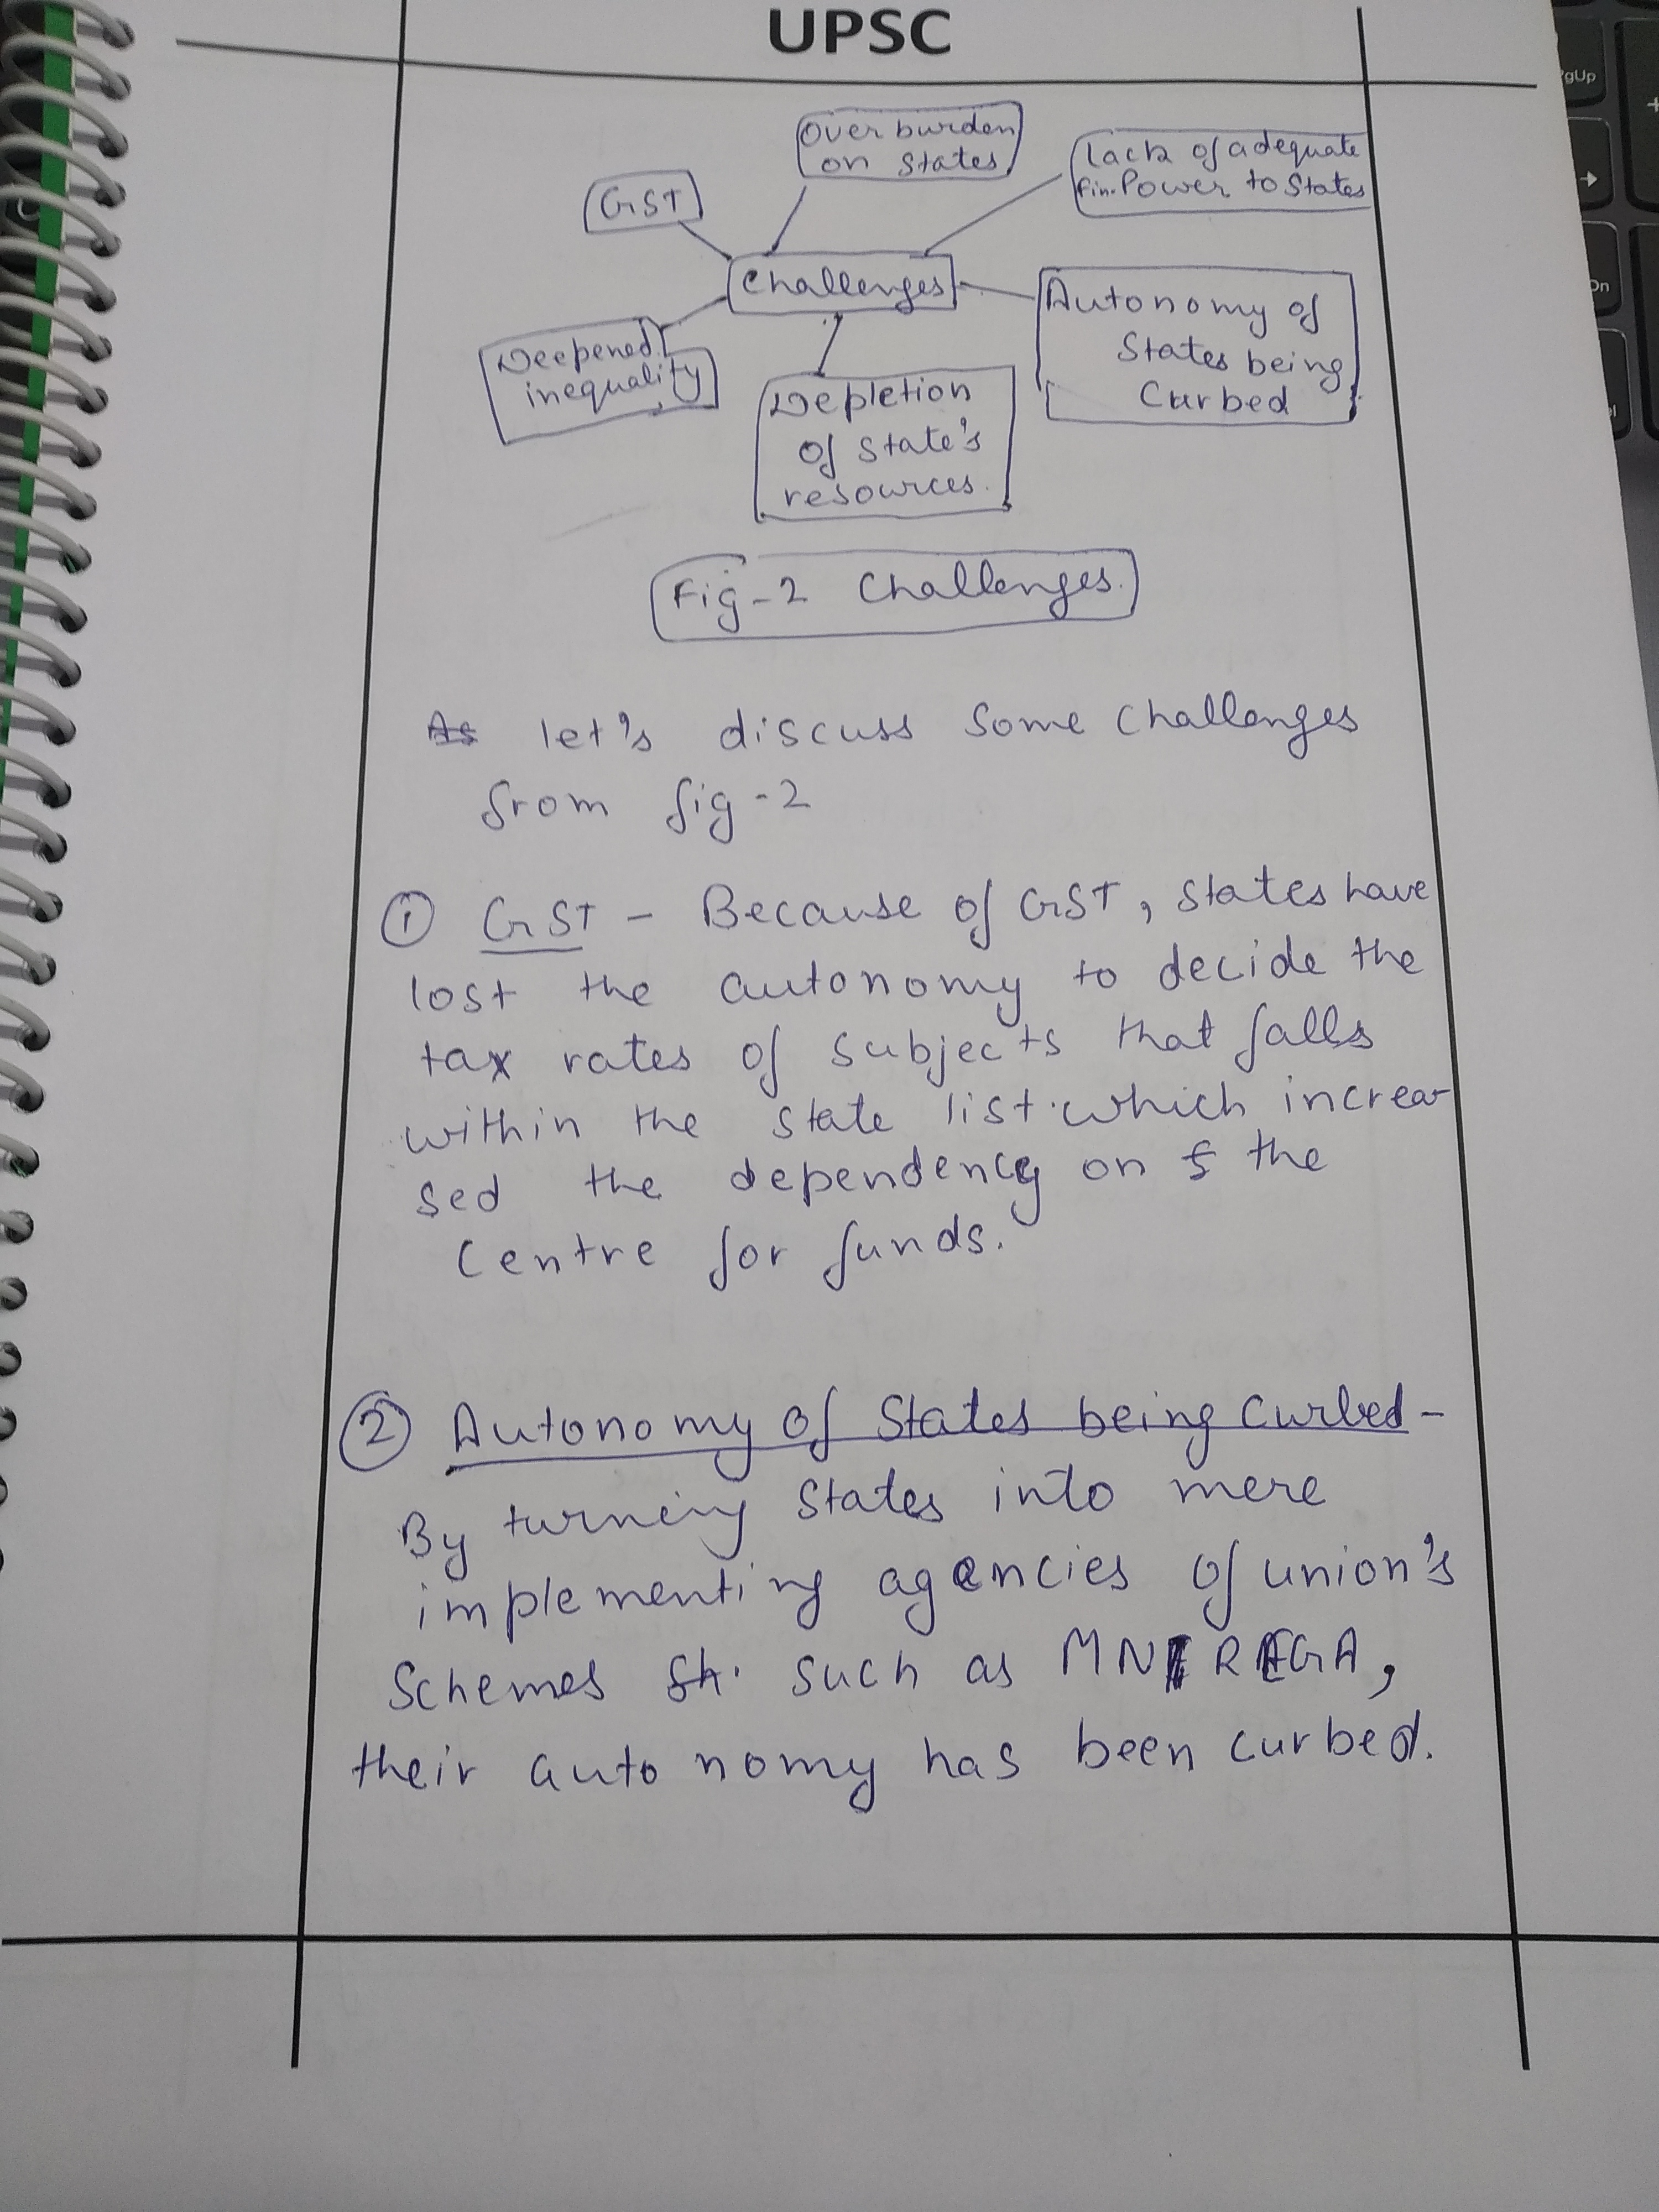 UPSC
Over burden
on States
Lack of adequate
fin. Power to States
GST
Challenges
Autonomy of
States being
Curbed
Deepened
inequality
Depletion
of state's
resources.
Fig-2 Challenges.
As let's discuss some challenges
from fig-2
① GST - Because of GST, States have
lost the autonomy to decide the
tax rates of subjects that falls
within the state list. which increa
sed the dependency on the
Centre for funds.
② Autonomy of States being curbed -
By turning States into mere
implementing agencies of union's
Schemes such as MNREGA,
their autonomy has been curbed.
gUp